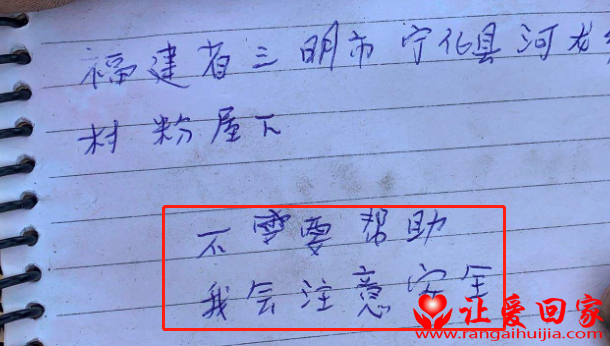 福建省三明市宁化县河龙
村粉屋下
不需要帮助
我会注意安全
让爱回家
www.rangaihuijia.com